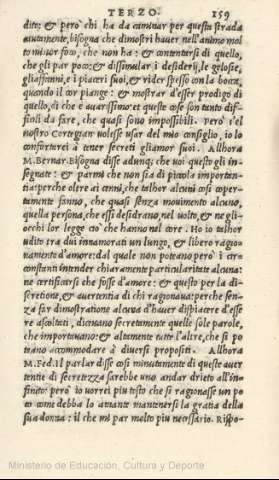 TERZO. 159
dito: & però chi ha da caminar per questa strada
aiutamente, bisogna che dimostri hauer nell'animo mol
to minor foco, che non ha: & contentarsi di quello,
che gli par poco: & dissimular i desiderij, le gelosie,
gli affanni, i piaceri suoi, & rider spesso con la bocca,
quando il cor piange: & mostrar d'esser prodigo di
quello, di che è auarissimo: et queste cose son tanto diffi
cili da fare, che quasi sono impossibili. però s'el
nostro Cortegian volesse usar del mio consiglio, io lo
confortarei à tener secreti gli amor suoi. Allhora
M. Bernar. Bisogna dISse adunq; che uoi questo gli in-
segnate: & parmi che non sia di piccola importan-
tia: perche oltre ai cenni, che talhor alcuni cosi coper-
tamente fanno, che quasi senza mouimento alcuno,
quella persona, che essi desidrano, nel uolto, & ne gli oc-
chi lor legge ciò che hanno nel core. Ho io talhor
udito tra dui innamorati un lungo, & libero ragiona-
mento d'amore: dal quale non poteano però i cir-
constanti intender chiaramente particularitate alcuna:
ne certificarsi che fosse d'amore: & questo per la di-
scretione, & auertentia di chi ragionaua: perche sen-
za far dimostratione alcuna d'hauer dispiacere d'esse
re ascoltati, diceuano secretamente quelle sole parole,
che importauano: & altamente tutte l'altre, che si po
teano accommodare à diuersi propositi. Allhora
M. Fed. il parlar disse cosi minutamente di queste auer
tentie di secretezza sarebbe uno andar drieto all'in-
finito: però io vorrei piu tosto che si ragionasse un po
co come debba lo amante mantenersi la gratia della
sua donna: il che mi par molto piu necessario. Rispo-
Ministerio de Educación, Cultura y Deporte